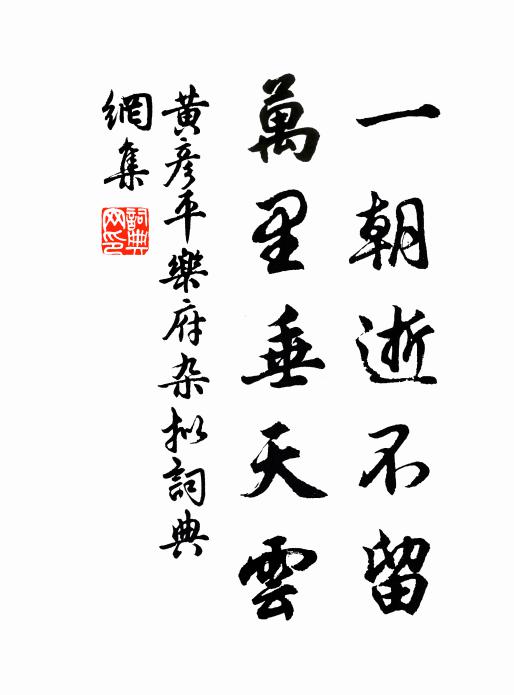 一朝逝不留
萬里垂天雲
黄彦平樂府杂拟詞典
網集
詞典
网印